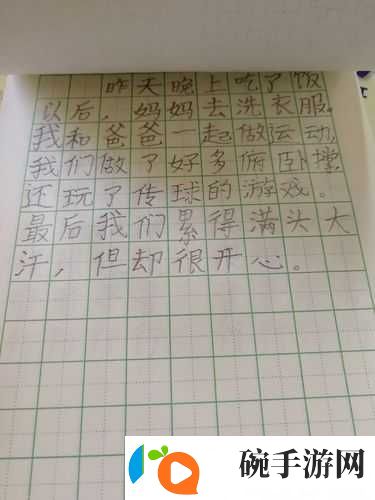 昨天晚上吃了饭
以后，妈妈去洗衣服。
我和爸爸一起做运动，
我们做了好多俯卧撑，
还玩了传球的游戏。
最后我们累得满头大
汗，但却很开心。
碗手游网